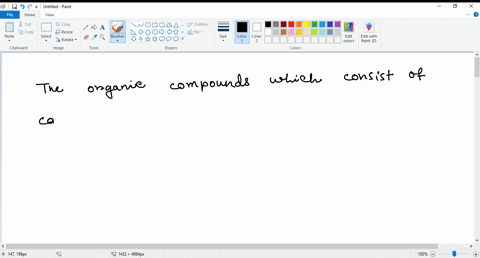 Untitled - Paint
File Home View
Paste Cut Copy Clipboard
Select Crop Resize Rotate Image
Tools
Brushes
Shapes Outline Fill
Size
Color 1 Color 2 Colors Edit colors Edit with Paint 3D
The organic compounds which consist of
co
147, 198px 1432 × 4984px 100%